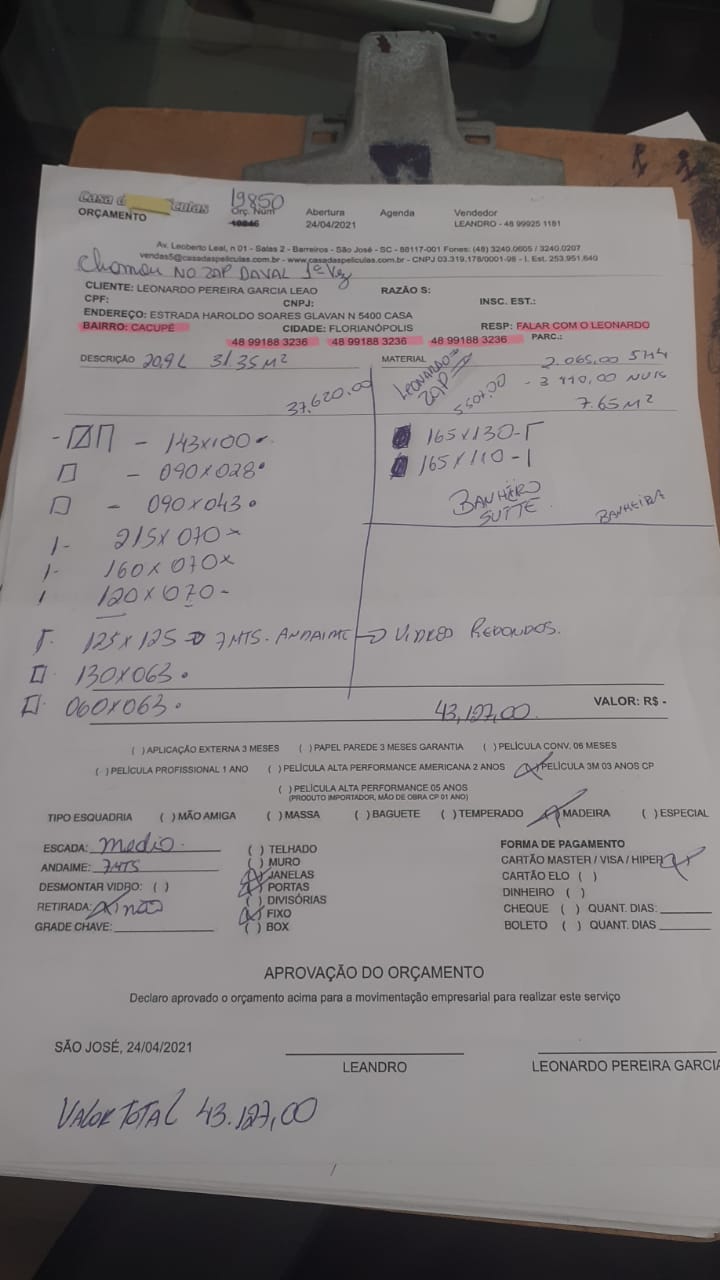 Casa d culas
ORÇAMENTO
19850
Orç. Num
Abertura
24/04/2021
Agenda
Vendedor
LEANDRO - 48 99925 1181
Av. Leoberto Leal, n 01 - Salas 2 - Barreiros - São José - SC - 88117-001 Fones: (48) 3240.0605 / 3240.0207
vendas5@casadaspeliculas.com.br - www.casadaspeliculas.com.br - CNPJ 03.319.178/0001-98 - I. Est. 253.951.640
Chamou NO ZAP DAVAL 1ª Vez
CLIENTE: LEONARDO PEREIRA GARCIA LEAO RAZÃO S:
CPF: CNPJ: INSC. EST.:
ENDEREÇO: ESTRADA HAROLDO SOARES GLAVAN N 5400 CASA
BAIRRO: CACUPÉ CIDADE: FLORIANÓPOLIS RESP: FALAR COM O LEONARDO
48 99188 3236 48 99188 3236 48 99188 3236 PARC.:
DESCRIÇÃO 31.35 M² MATERIAL 2.065,00
LEONARDO ZAP
37,620.00 5507,00
7.65 M²
- 143x100
- 090x028
- 090x043
215x070
160x070
120x070-
125x125 7 MTS. ANDAIME VIDROS REDONDOS.
130x063
060x063
165x130-
165x110-1
BANHEIRO SUITE
BANHEIRA
43,127,00 VALOR: R$ -
( ) APLICAÇÃO EXTERNA 3 MESES ( ) PAPEL PAREDE 3 MESES GARANTIA ( ) PELÍCULA CONV. 06 MESES
( ) PELÍCULA PROFISSIONAL 1 ANO ( ) PELÍCULA ALTA PERFORMANCE AMERICANA 2 ANOS (X) PELÍCULA 3M 03 ANOS CP
( ) PELÍCULA ALTA PERFORMANCE 05 ANOS
(PRODUTO IMPORTADOR, MÃO DE OBRA CP 01 ANO)
TIPO ESQUADRIA ( ) MÃO AMIGA ( ) MASSA ( ) BAGUETE ( ) TEMPERADO (X) MADEIRA ( ) ESPECIAL
ESCADA: medio.
ANDAIME: 7 MTS
DESMONTAR VIDRO: ( )
RETIRADA: (X) não
GRADE CHAVE:
( ) TELHADO
( ) MURO
(X) JANELAS
(X) PORTAS
( ) DIVISÓRIAS
(X) FIXO
( ) BOX
FORMA DE PAGAMENTO
CARTÃO MASTER / VISA / HIPER (X)
CARTÃO ELO ( )
DINHEIRO ( )
CHEQUE ( ) QUANT. DIAS:
BOLETO ( ) QUANT. DIAS
APROVAÇÃO DO ORÇAMENTO
Declaro aprovado o orçamento acima para a movimentação empresarial para realizar este serviço
SÃO JOSÉ, 24/04/2021
LEANDRO
LEONARDO PEREIRA GARCIA
VALOR TOTAL 43.127,00